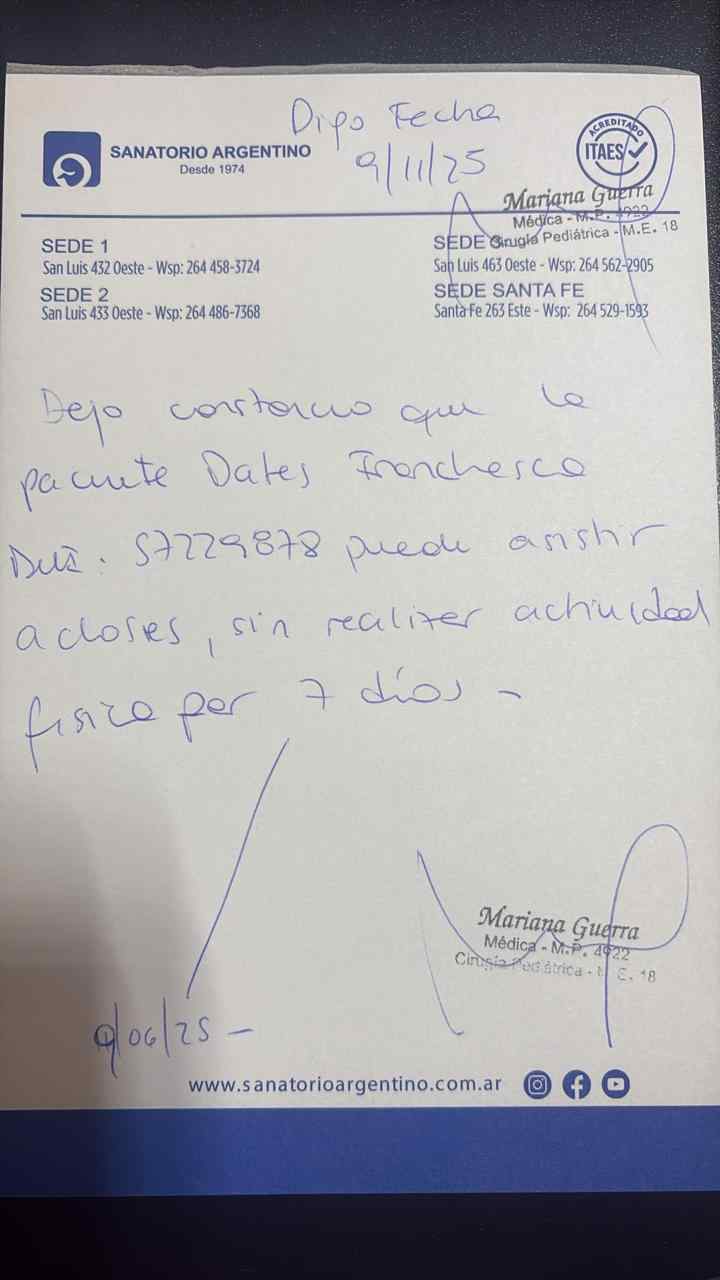 Digo Fecha
9/11/25
SANATORIO ARGENTINO
Desde 1974
ACREDITADO
ITAES
Mariana Guerra
Médica - M.P. 4922
Cirugía Pediátrica - M.E. 18
SEDE 1
San Luis 432 Oeste - Wsp: 264 458-3724
SEDE 2
San Luis 433 Oeste - Wsp: 264 486-7368
SEDE
San Luis 463 Oeste - Wsp: 264 562-2905
SEDE SANTA FE
Santa Fe 263 Este - Wsp: 264 529-1593
Dejo constancia que la
paciente Dates Franchesca
DNI: 57229878 puede asistir
a clases, sin realizar actividad
fisica por 7 días -
Mariana Guerra
Médica - M.P. 4922
Cirugía Pediátrica - M.E. 18
9/06/25 -
www.sanatorioargentino.com.ar